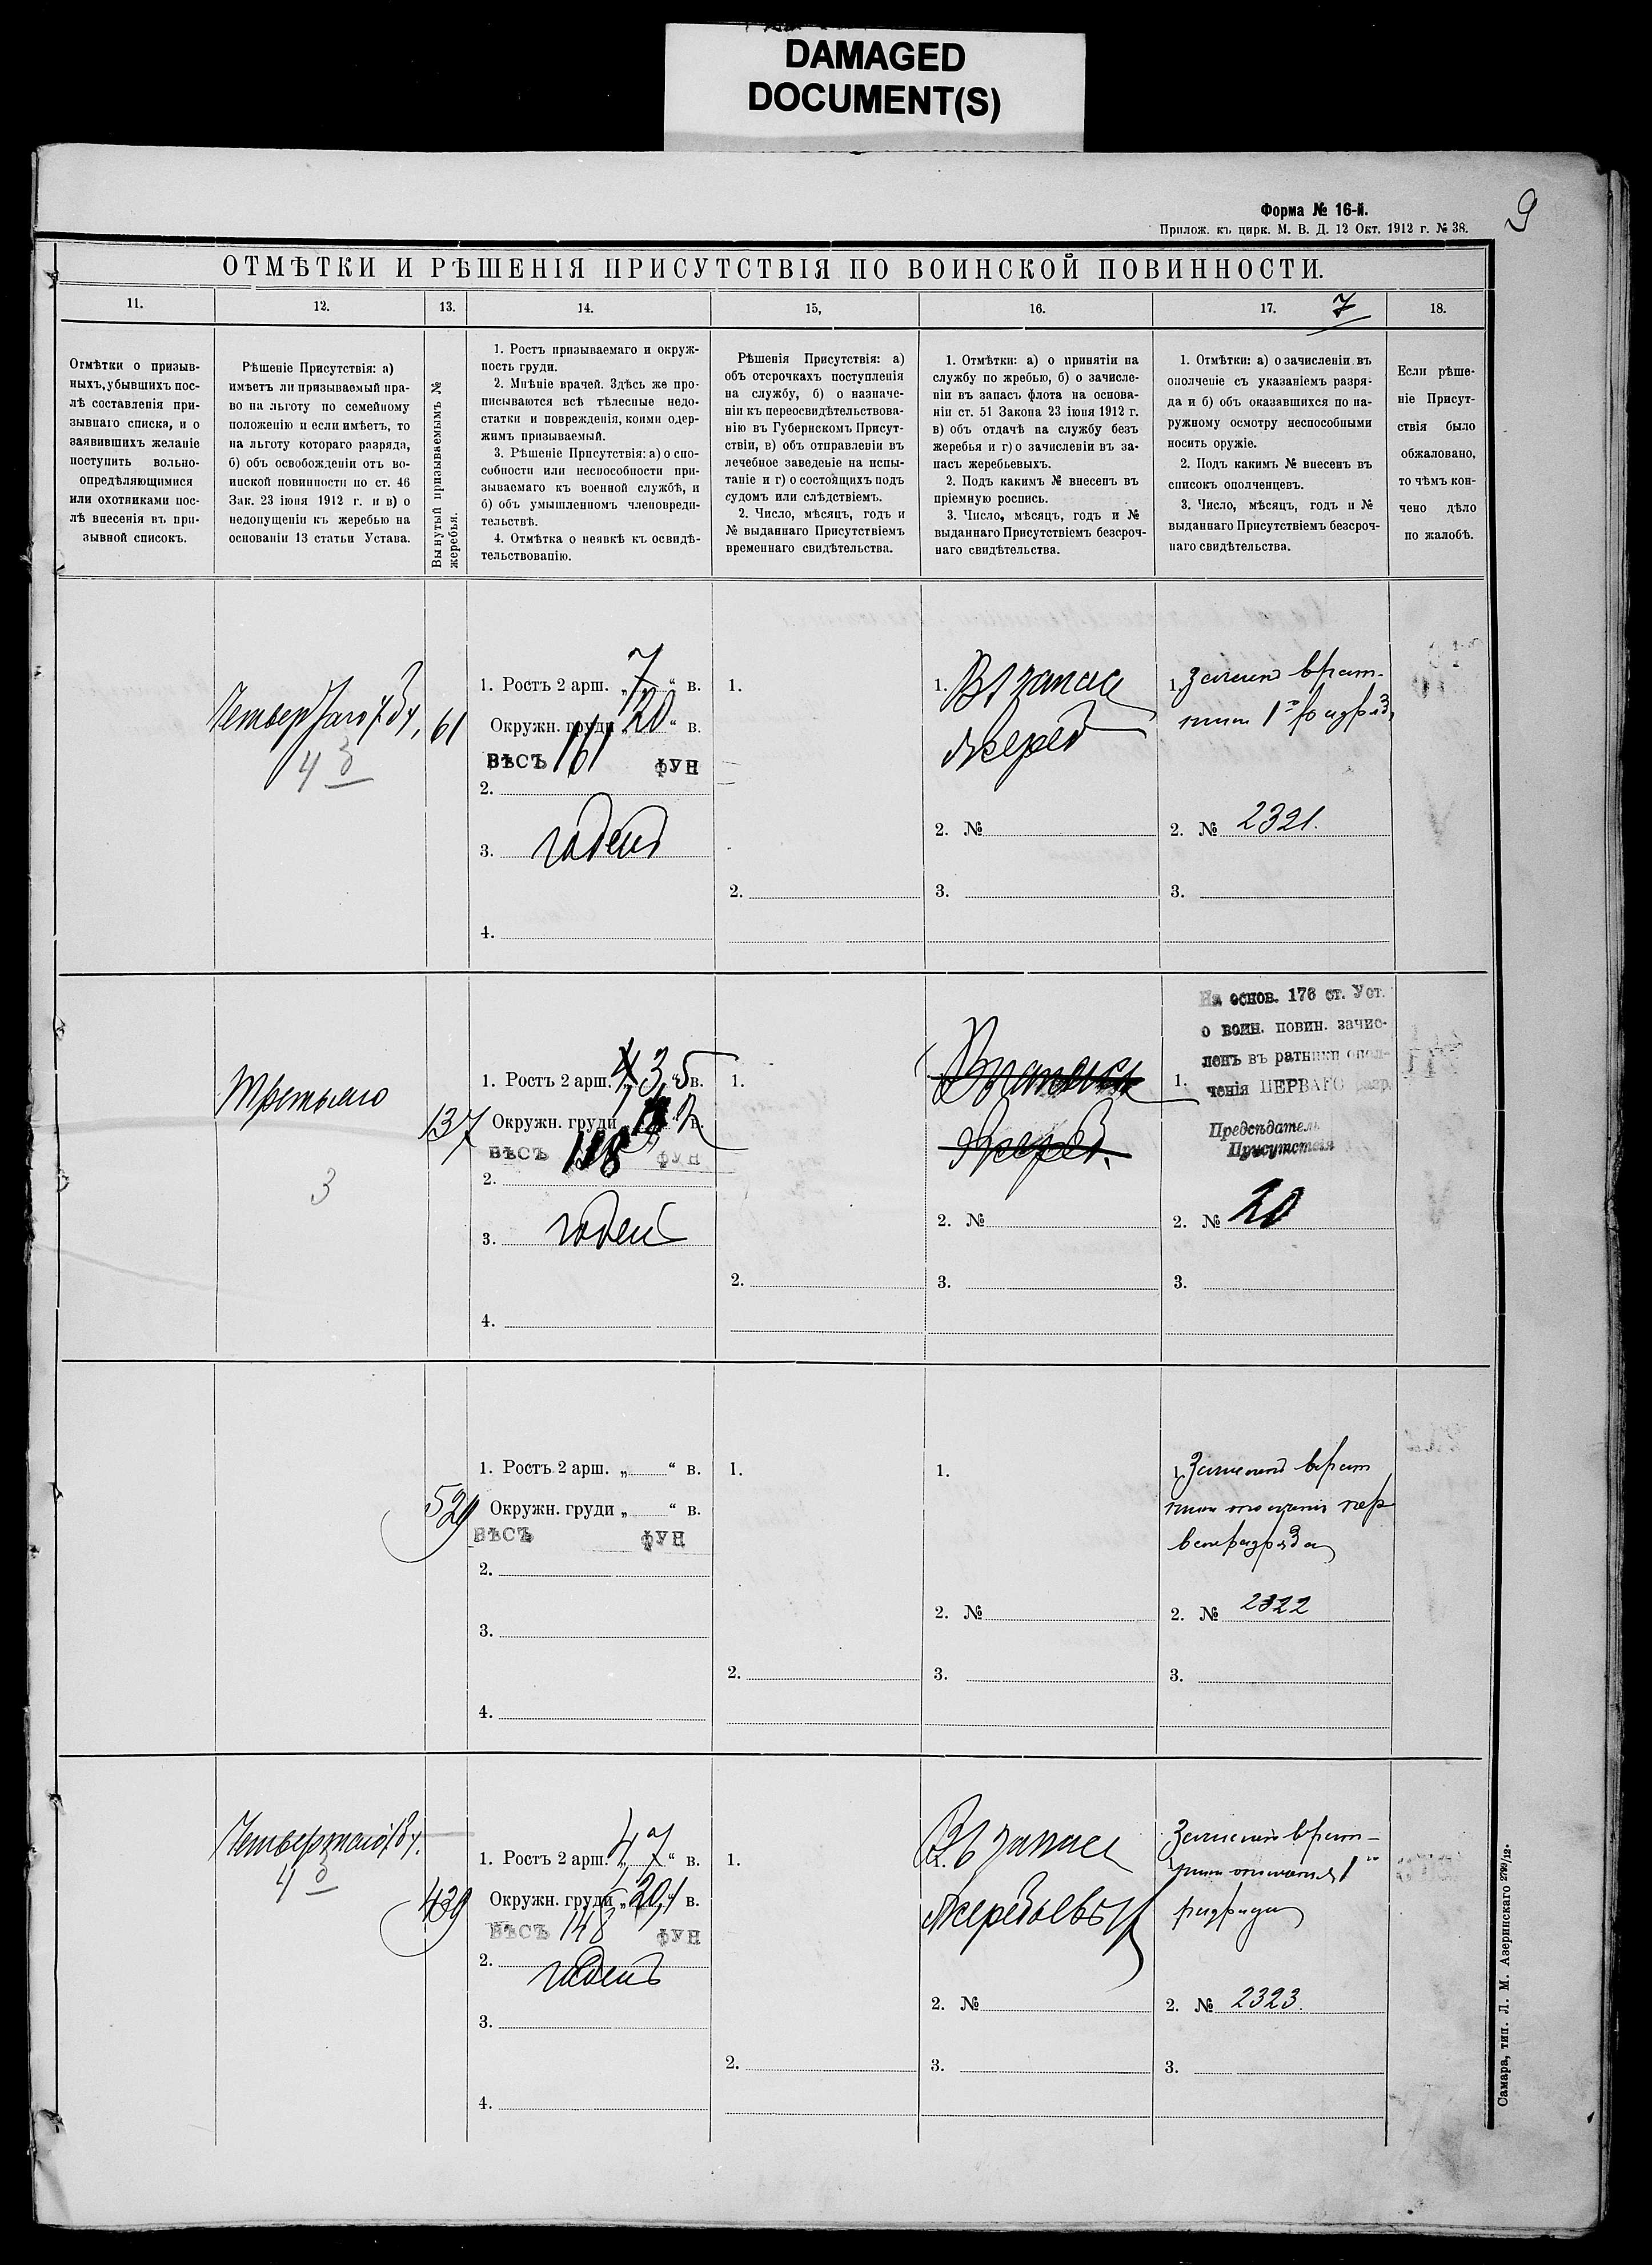 DAMAGED
DOCUMENT(S)
Форма № 16-й.
Прилож. къ цирк. М. В. Д. 12 Окт. 1912 г. № 38.
9
ОТМѢТКИ И РѢШЕНІЯ ПРИСУТСТВІЯ ПО ВОИНСКОЙ ПОВИННОСТИ.
11.
12.
13.
14.
15,
16.
17.
7
18.
Отмѣтки о призыв-
ныхъ, убывшихъ пос-
лѣ составленія при-
зывнаго списка, и о
заявившихъ желаніе
поступить вольно-
опредѣляющимися
или охотниками пос-
лѣ внесенія въ при-
зывной списокъ.
Рѣшеніе Присутствія: а)
имѣетъ ли призываемый пра-
во на льготу по семейному
положенію и если имѣетъ, то
на льготу котораго разряда,
б) объ освобожденіи отъ во-
инской повинности по ст. 46
Зак. 23 іюня 1912 г. и в) о
недопущеніи къ жеребью на
основаніи 13 статьи Устава.
Вынутый призываемымъ №
жеребья.
1. Ростъ призываемаго и окруж-
ность груди.
2. Мнѣніе врачей. Здѣсь же про-
писываются всѣ тѣлесные недо-
статки и поврежденія, коими одер-
жимъ призываемый.
3. Рѣшеніе Присутствія: а) о спо-
собности или неспособности при-
зываемаго къ военной службѣ, и
б) объ умышленномъ членовреди-
тельствѣ.
4. Отмѣтка о неявкѣ къ освидѣ-
тельствованію.
Рѣшенія Присутствія: а)
объ отсрочкахъ поступленія
на службу, б) о назначе-
ніи къ переосвидѣтельствова-
нію въ Губернскомъ Присут-
ствіи, в) объ отправленіи въ
лечебное заведеніе на испы-
таніе и г) о состоящихъ подъ
судомъ или слѣдствіемъ.
2. Число, мѣсяцъ, годъ и
№ выданнаго Присутствіемъ
временнаго свидѣтельства.
1. Отмѣтки: а) о принятіи на
службу по жребью, б) о зачисле-
ніи въ запасъ флота на основа-
ніи ст. 51 Закона 23 іюня 1912 г.
в) объ отдачѣ на службу безъ
жеребья и г) о зачисленіи въ за-
пасъ жеребьевыхъ.
2. Подъ какимъ № внесенъ въ
пріемную роспись.
3. Число, мѣсяцъ, годъ и №
выданнаго Присутствіемъ безсроч-
наго свидѣтельства.
1. Отмѣтки: а) о зачисленіи въ
ополченіе съ указаніемъ разря-
да и б) объ оказавшихся по на-
ружному осмотру неспособными
носить оружіе.
2. Подъ какимъ № внесенъ въ
списокъ ополченцевъ.
3. Число, мѣсяцъ, годъ и №
выданнаго Присутствіемъ безсроч-
наго свидѣтельства.
Если рѣше-
ніе Присут-
ствія было
обжаловано,
то чѣмъ кон-
чено дѣло
по жалобѣ.
Четвертаго
4
61
1. Ростъ 2 арш. „ 7 “ в.
Окружн. груди „ 20 “ в.
ВѢСЪ 161 ФУН
2.
3. годенъ
4.
1.
2.
1. Въ запасъ
жереб
2. №
3.
1. Зачисленъ в рат-
ники 1го разряд.
2. № 2321.
3.
Третьяго
3
137
1. Ростъ 2 арш. „ 3,5 “ в.
Окружн. груди „ “ в.
ВѢСЪ 118 ФУН
2.
3. годенъ
4.
1.
2.
Въ запасъ
жереб.
2. №
3.
На основ. 176 ст. Уст.
о воин. повин. зачис-
ленъ въ ратники опол-
1. ченія ПЕРВАГО разр.
Предсѣдатель
Присутствія
2. № 20
3.
529
1. Ростъ 2 арш. „ “ в.
Окружн. груди „ “ в.
ВѢСЪ ФУН
2.
3.
4.
1.
2.
1.
2. №
3.
1. Зачисленъ в рат
ники ополченія пер
ваго разряда
2. № 2322
3.
Четвертаго
4
439
1. Ростъ 2 арш. „ “ в.
Окружн. груди „ 20,1 “ в.
ВѢСЪ 148 ФУН
2.
годенъ
3.
4.
1.
2.
1. Въ запасъ
жеребьевый
2. №
3.
Зачисленъ в рат-
ники ополченія 1го
разряда
2. № 2323.
3.
Самара, тип. Л. М. Азеринскаго 2799/12.